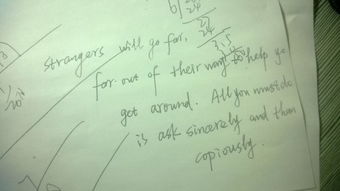 6 24
24
3.5
strangers will go far,
far out of their way to help yo
get around. All you must do
is ask sincerely and then
copiously.